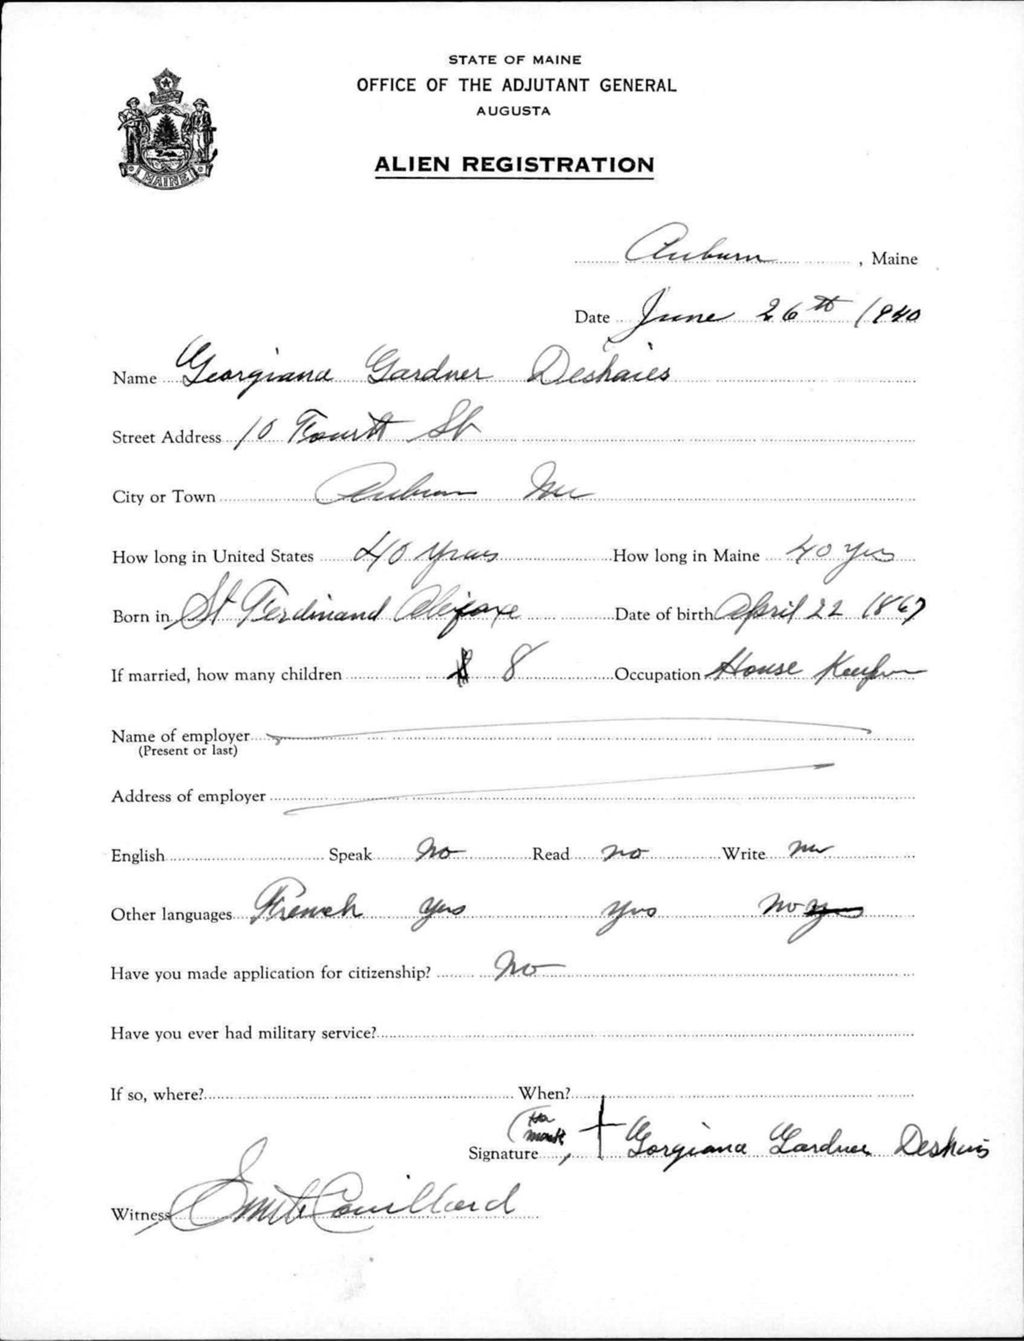 STATE OF MAINE
OFFICE OF THE ADJUTANT GENERAL
AUGUSTA
ALIEN REGISTRATION
MAINE
Auburn, Maine
Date June 26th 1940
Name Georgiana Gardner Deshaies
Street Address 10 Fourth St
City or Town Auburn Me
How long in United States 40 years How long in Maine 40 yrs
Born in St Ferdinand Date of birth April 22 1867
If married, how many children 8 Occupation House Keeper
Name of employer
(Present or last)
Address of employer
English Speak No Read no Write no
Other languages French yes yes no
Have you made application for citizenship? No
Have you ever had military service?
If so, where? When?
(Her mark,
Signature + Gorgiana Gardner Deshaies
Witness Couillard